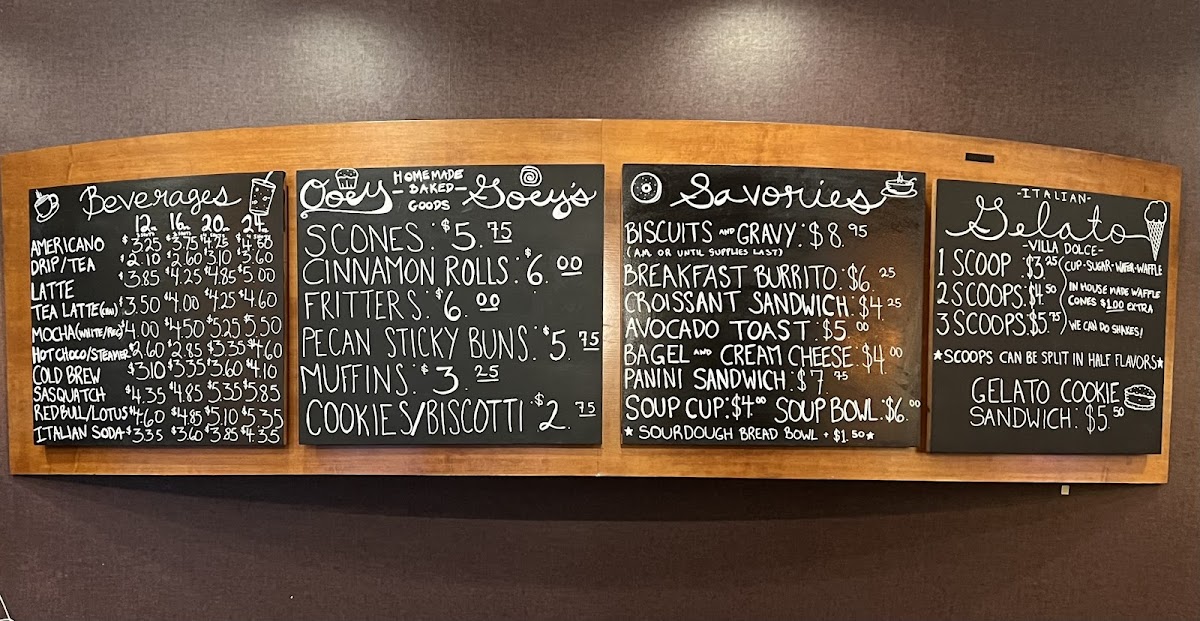 Beverages
12oz 16oz 20oz 24oz
AMERICANO $3.25 $3.75 $4.25 $4.60
DRIP/TEA $2.10 $2.60 $3.10 $3.60
LATTE $3.85 $4.25 $4.85 $5.00
TEA LATTE $3.50 $4.00 $4.25 $4.60
MOCHA(WHITE/REG) $4.00 $4.50 $5.25 $5.50
HOT CHOCO/STEAMER $2.60 $2.85 $3.35 $4.60
COLD BREW $3.10 $3.35 $3.60 $4.10
SASQUATCH $4.35 $4.85 $5.35 $5.85
REDBULL/LOTUS $4.60 $4.85 $5.10 $5.35
ITALIAN SODA $3.35 $3.60 $3.85 $4.35
Ooey HOMEMADE Gooey's
-BAKED-
GOODS
SCONES: $5.75
CINNAMON ROLLS: $6.00
FRITTERS: $6.00
PECAN STICKY BUNS: $5.75
MUFFINS: $3.25
COOKIES/BISCOTTI: $2.75
Savories
BISCUITS AND GRAVY: $8.95
(A.M. OR UNTIL SUPPLIES LAST)
BREAKFAST BURRITO: $6.25
CROISSANT SANDWICH: $4.25
AVOCADO TOAST: $5.00
BAGEL AND CREAM CHEESE: $4.00
PANINI SANDWICH: $7.75
SOUP CUP: $4.00 SOUP BOWL: $6.00
★ SOURDOUGH BREAD BOWL + $1.50 ★
-ITALIAN-
Gelato
-VILLA DOLCE-
1 SCOOP: $3.25 CUP-SUGAR-WAFER-WAFFLE
2 SCOOPS: $4.50 IN HOUSE MADE WAFFLE
CONES $1.00 EXTRA
3 SCOOPS: $5.75 WE CAN DO SHAKES!
★SCOOPS CAN BE SPLIT IN HALF FLAVORS★
GELATO COOKIE
SANDWICH: $5.50